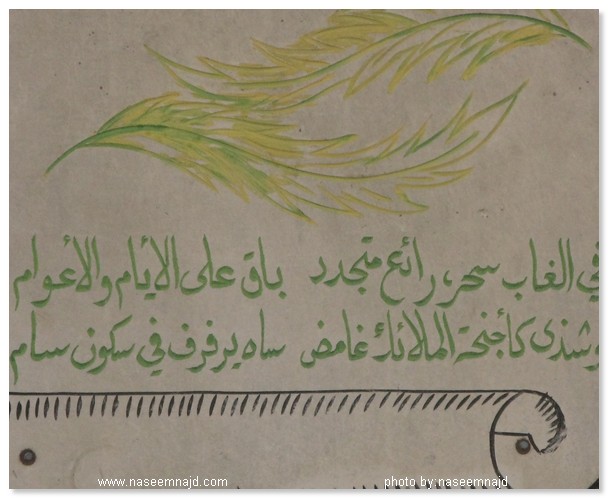 في الغاب سحر، رائع متجدد باق على الأيام والأعوام
وشذى كأجنحة الملائك غامض ساه يرفرف في سكون سام
www.naseemnajd.com photo by:naseemnajd